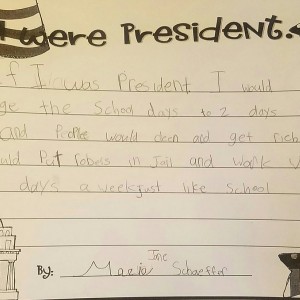 I were President.
If I was President I would
ge the School days to 2 days
and People would clean and get rich
uld Put robers in Jail and work
days a week just like School
By: Maria Schaeffer